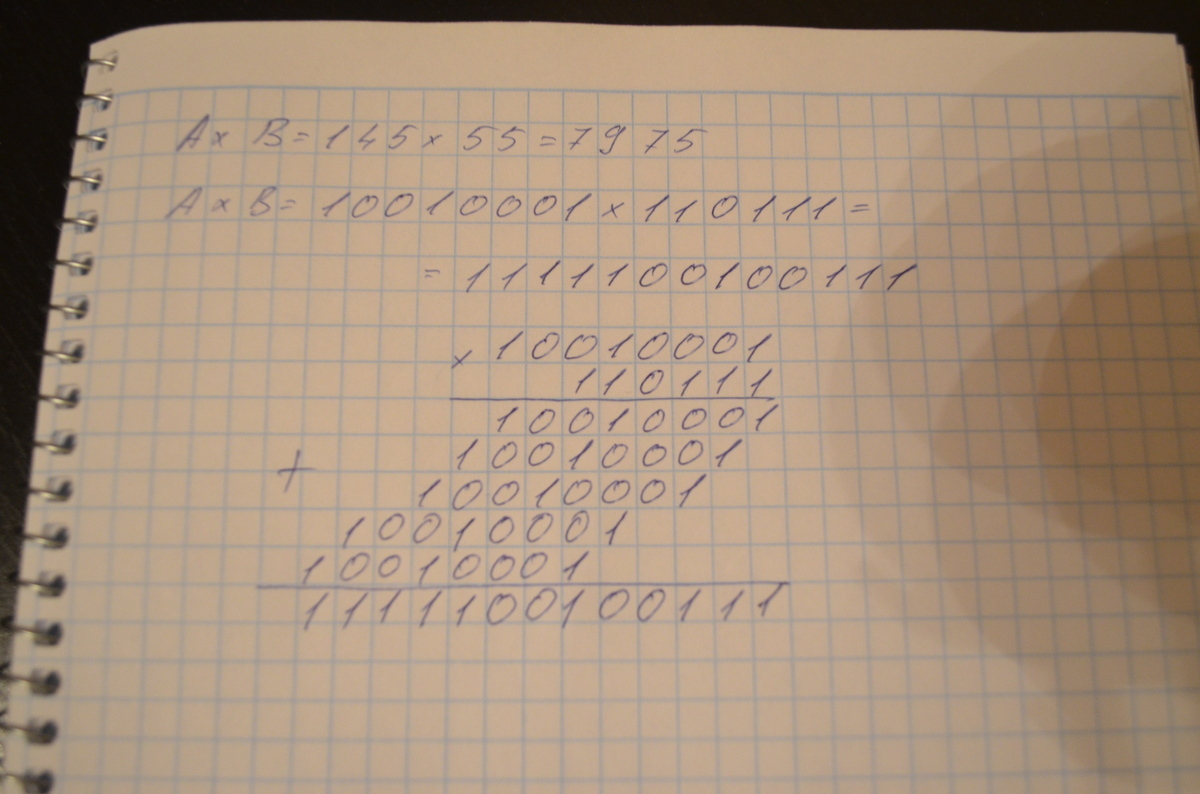 A × B = 145 × 55 = 7975
A × B = 10010001 × 110111 =
= 1111100100111
× 10010001
110111
10010001
+ 10010001
10010001
10010001
10010001
1111100100111